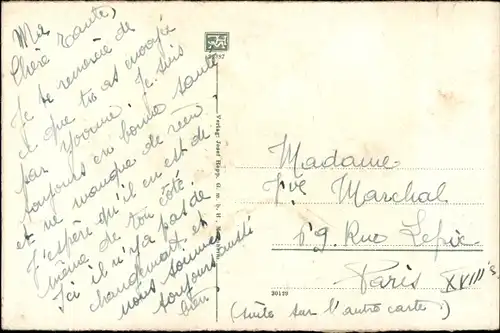 Ma
Chère Tante,
Je te remercie de
ce que tu as envoyé
par Yvonne. Je suis
toujours en bonne santé
et ne manque de rien
J'espère qu'il en est de
même de ton côté.
Ici il n'y a pas de
changement et
nous sommes
toujours aussi
bien
Verlag: Josef Rapp, G. m. b. H.
Madame
Vve Marchal
59 Rue Lepic
Paris XVIIIe
30129
(suite sur l'autre carte.)